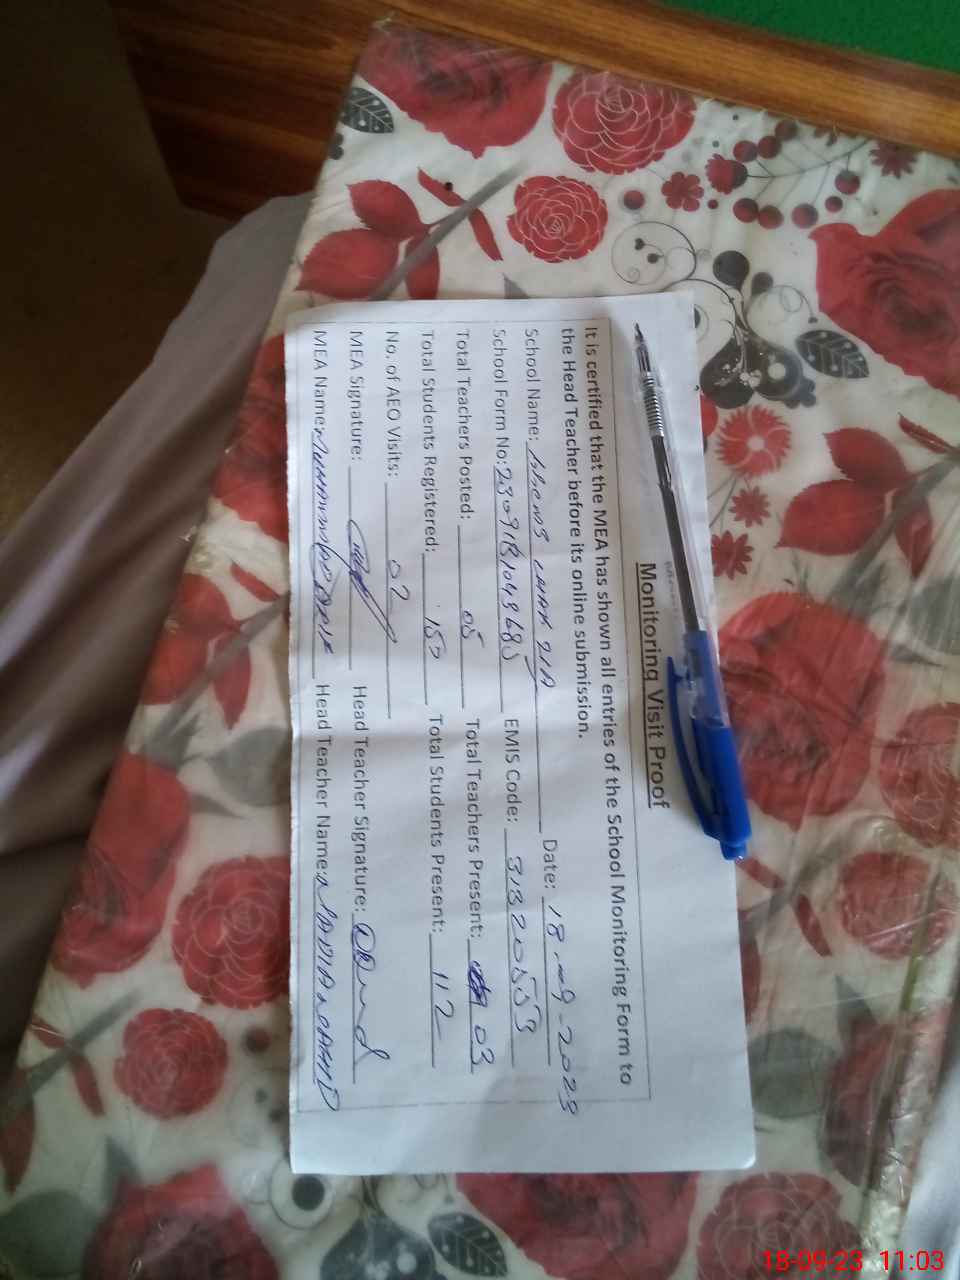 Monitoring Visit Proof
It is certified that the MEA has shown all entries of the School Monitoring Form to
the Head Teacher before its online submission.
School Name: Date: 18-09-2023
School Form No: 23091B1049685 EMIS Code: 31320553
Total Teachers Posted: 05 Total Teachers Present: 03
Total Students Registered: 150 Total Students Present: 112
No. of AEO Visits: 02
MEA Signature: Head Teacher Signature:
MEA Name: MUHAMMAD Head Teacher Name:
18-09-23 11:03